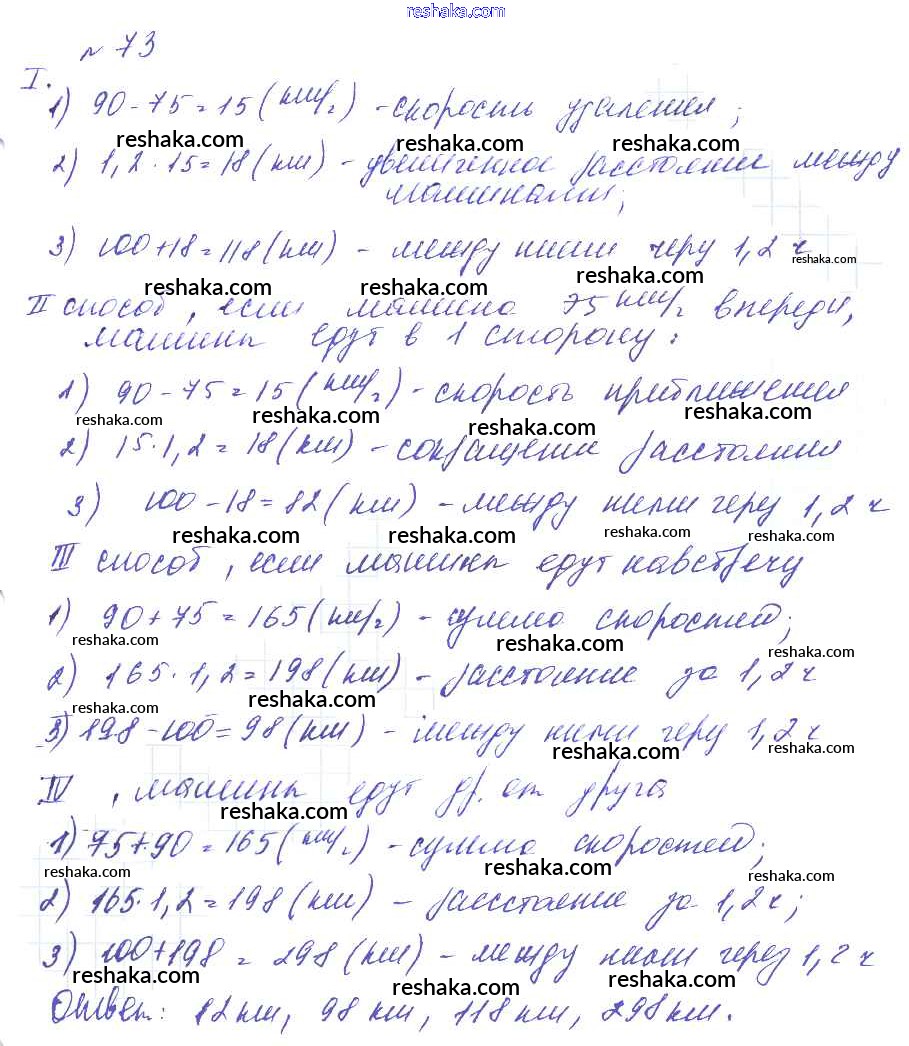 reshaka.com
№ 73
I.
1) 90-75=15(км/г) -скорость удаления;
reshaka.com reshaka.com reshaka.com
2) 1,2·15=18(км) - увеличенное расстояние между
машинами;
3) 100+18=118(км) - между ними через 1,2 ч
reshaka.com
reshaka.com reshaka.com reshaka.com
II способ, если машина 75 км/г впереди,
машины едут в 1 сторону:
1) 90-75=15(км/г) -скорость приближения
reshaka.com reshaka.com reshaka.com reshaka.com
2) 15·1,2=18(км) -сокращение расстояния
3) 100-18=82(км) -между ними через 1,2 ч
reshaka.com reshaka.com reshaka.com reshaka.com
III способ, если машины едут навстречу
1) 90+75=165(км/г) - сумма скоростей;
reshaka.com reshaka.com reshaka.com
2) 165·1,2=198(км) - расстояние за 1,2 ч
reshaka.com reshaka.com reshaka.com
3) 198-100=98(км) - между ними через 1,2 ч
reshaka.com reshaka.com
IV , машины едут др. от друга
reshaka.com reshaka.com
1) 75+90=165(км/г) -сумма скоростей;
reshaka.com reshaka.com reshaka.com
2) 165·1,2=198(км) - расстояние за 1,2ч;
3) 100+198 = 298(км) -между ними через 1,2 ч
reshaka.com reshaka.com reshaka.com
Ответ: 82км, 98 км, 118км, 298км.